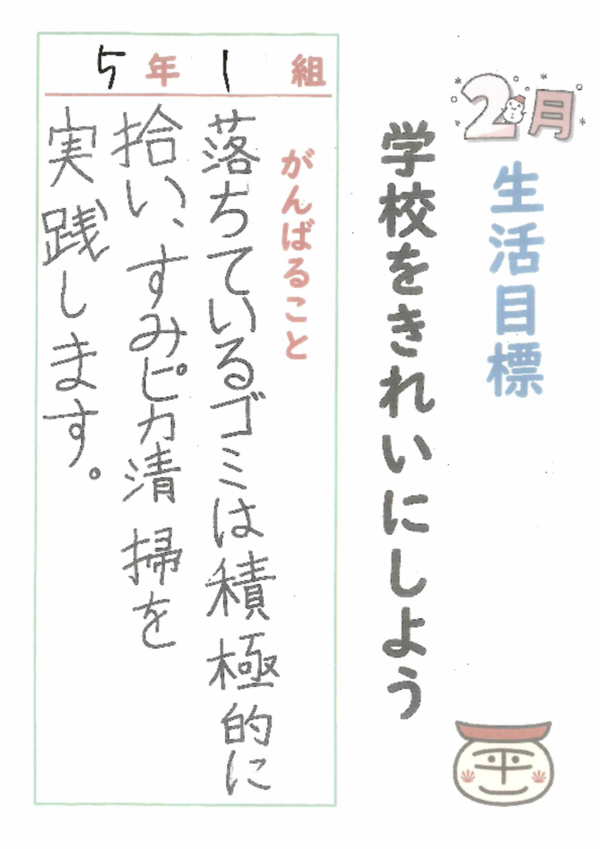 2月
生活目標
学校をきれいにしよう
5年1組
がんばること
落ちているゴミは積極的に
拾い、すみピカ清掃を
実践します。